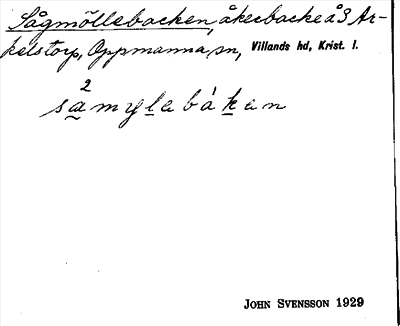 Sågmöllebacken, åkerbacke å 3 Ar-
kelstorp, Oppmanna sn, Villands hd, Krist. l.
2
samylabákan
JOHN SVENSSON 1929